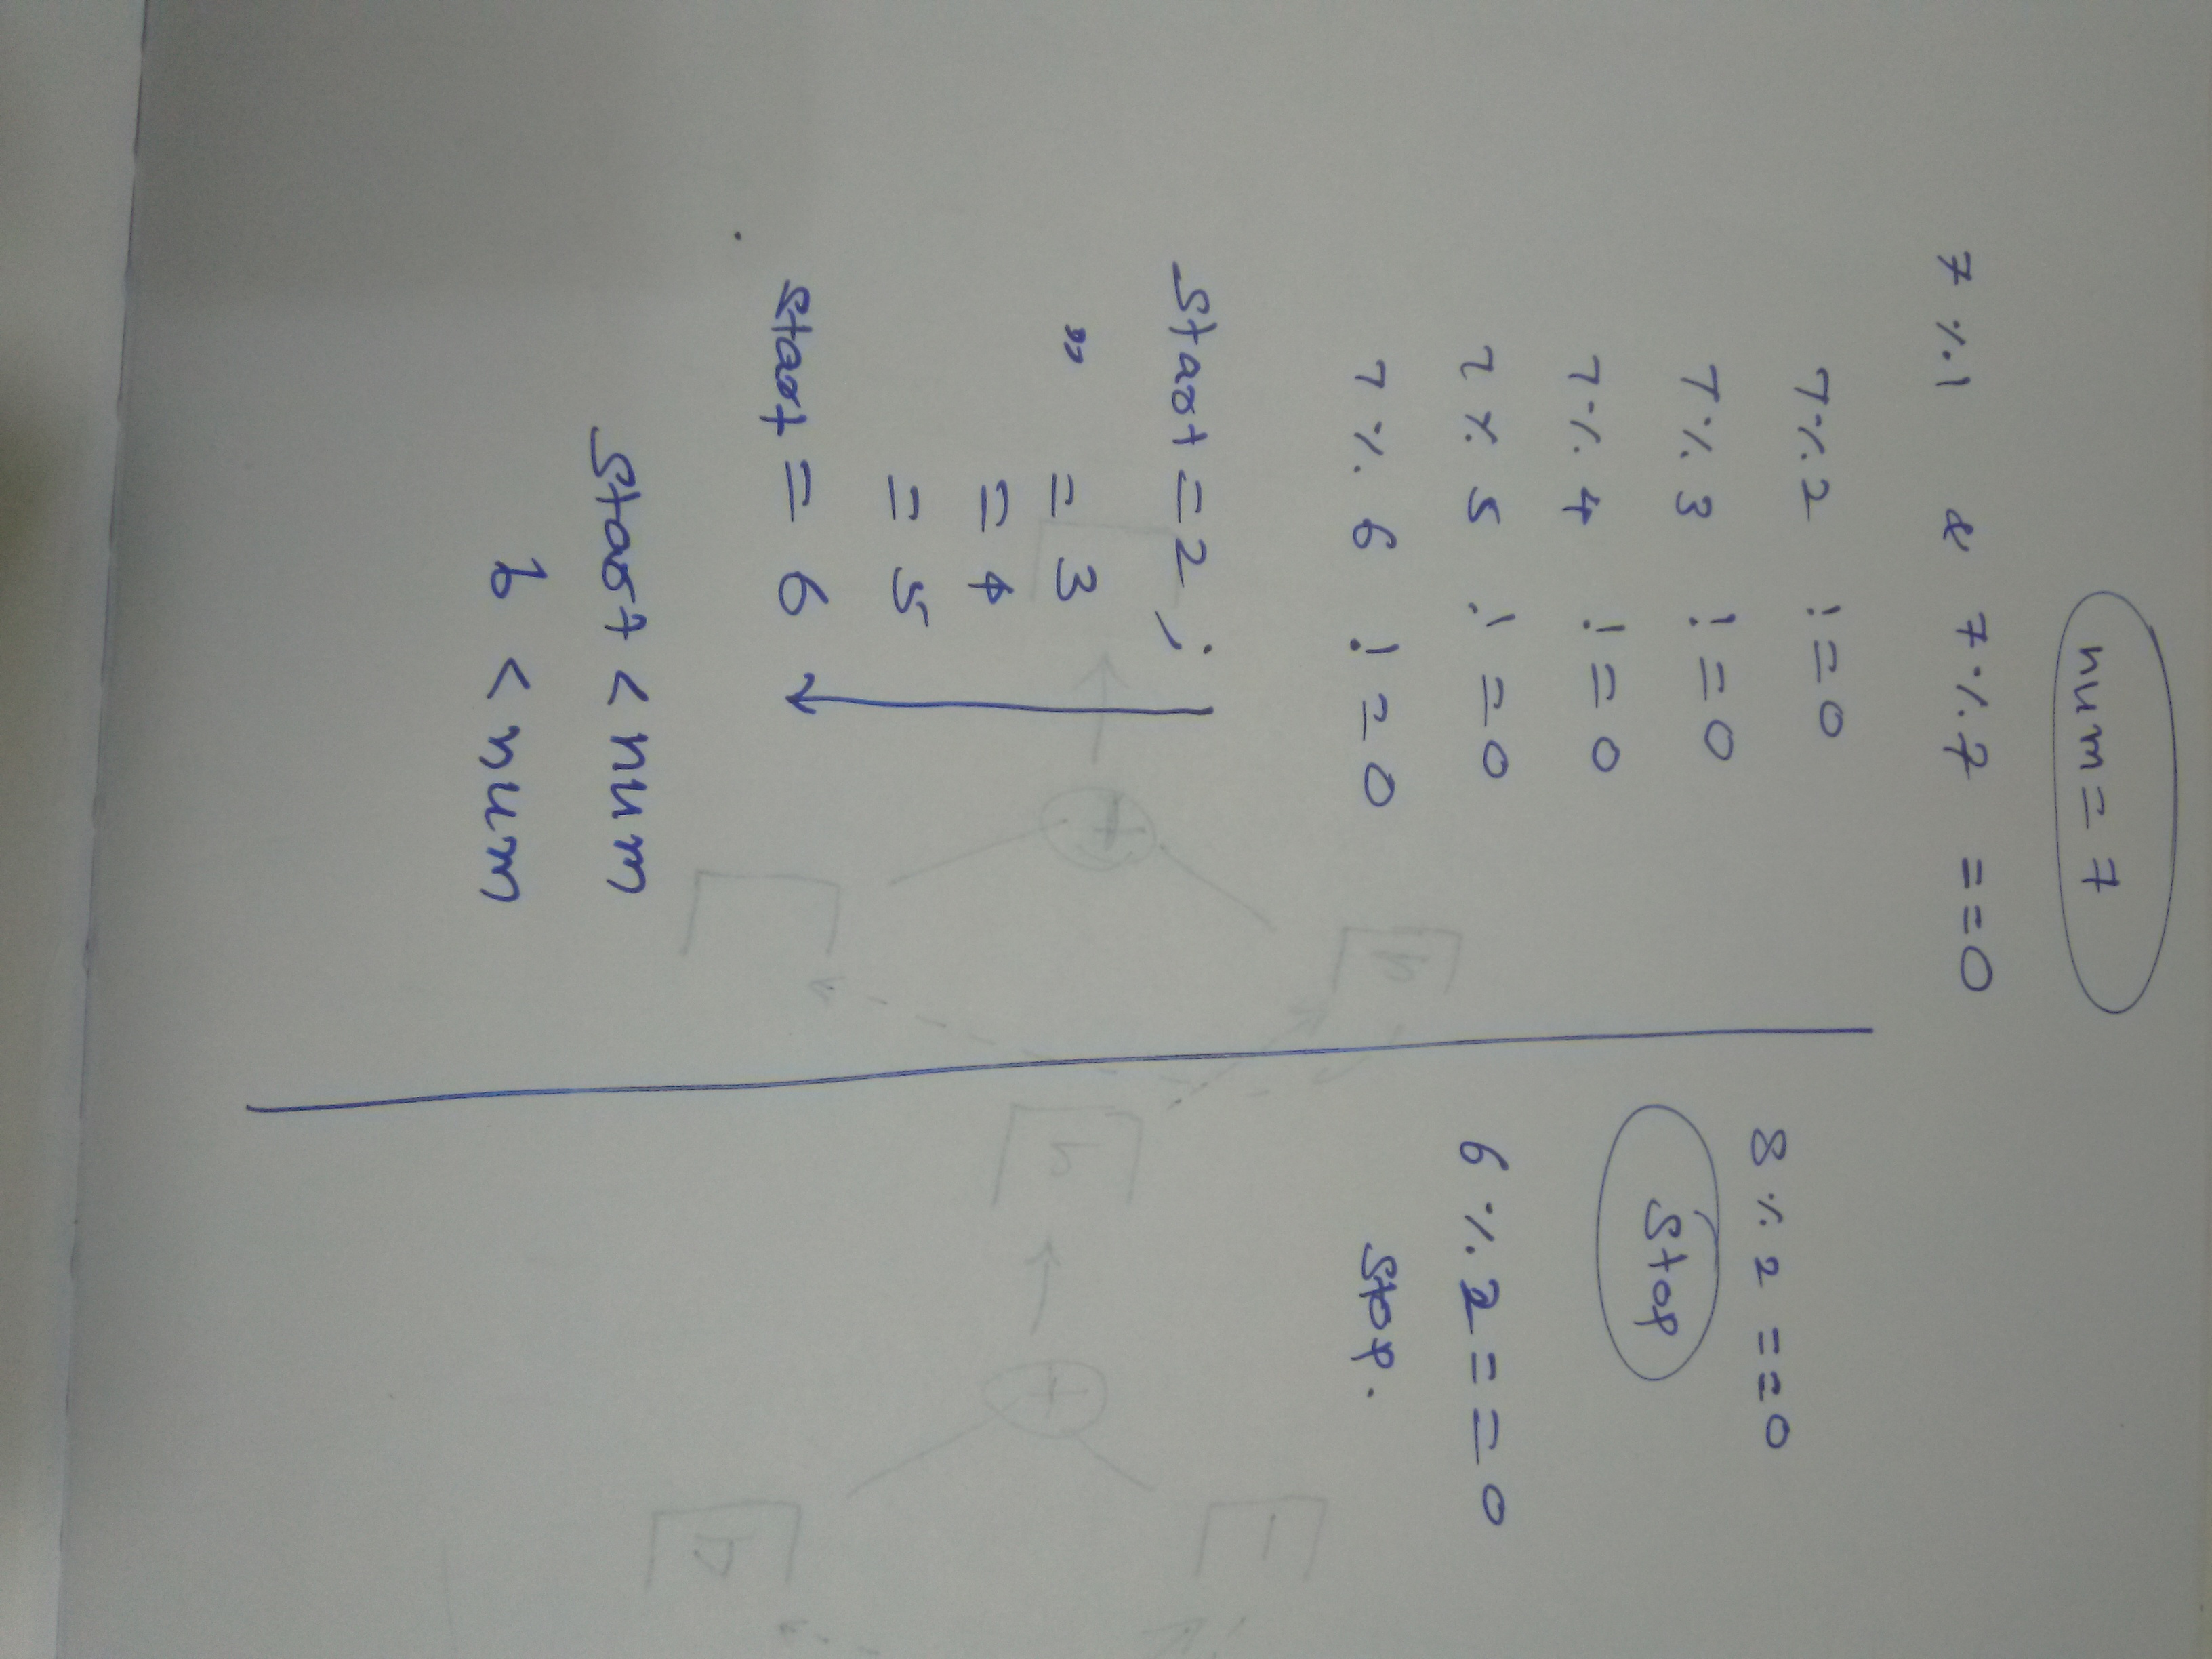 num = 7
7 % 1 & 7 % 7 == 0
7 % 2 != 0
7 % 3 != 0
7 % 4 != 0
7 % 5 != 0
7 % 6 != 0
start = 2 ;
" = 3
= 4
= 5
start = 6
start < num
6 < num
8 % 2 == 0
stop
6 % 2 == 0
stop.